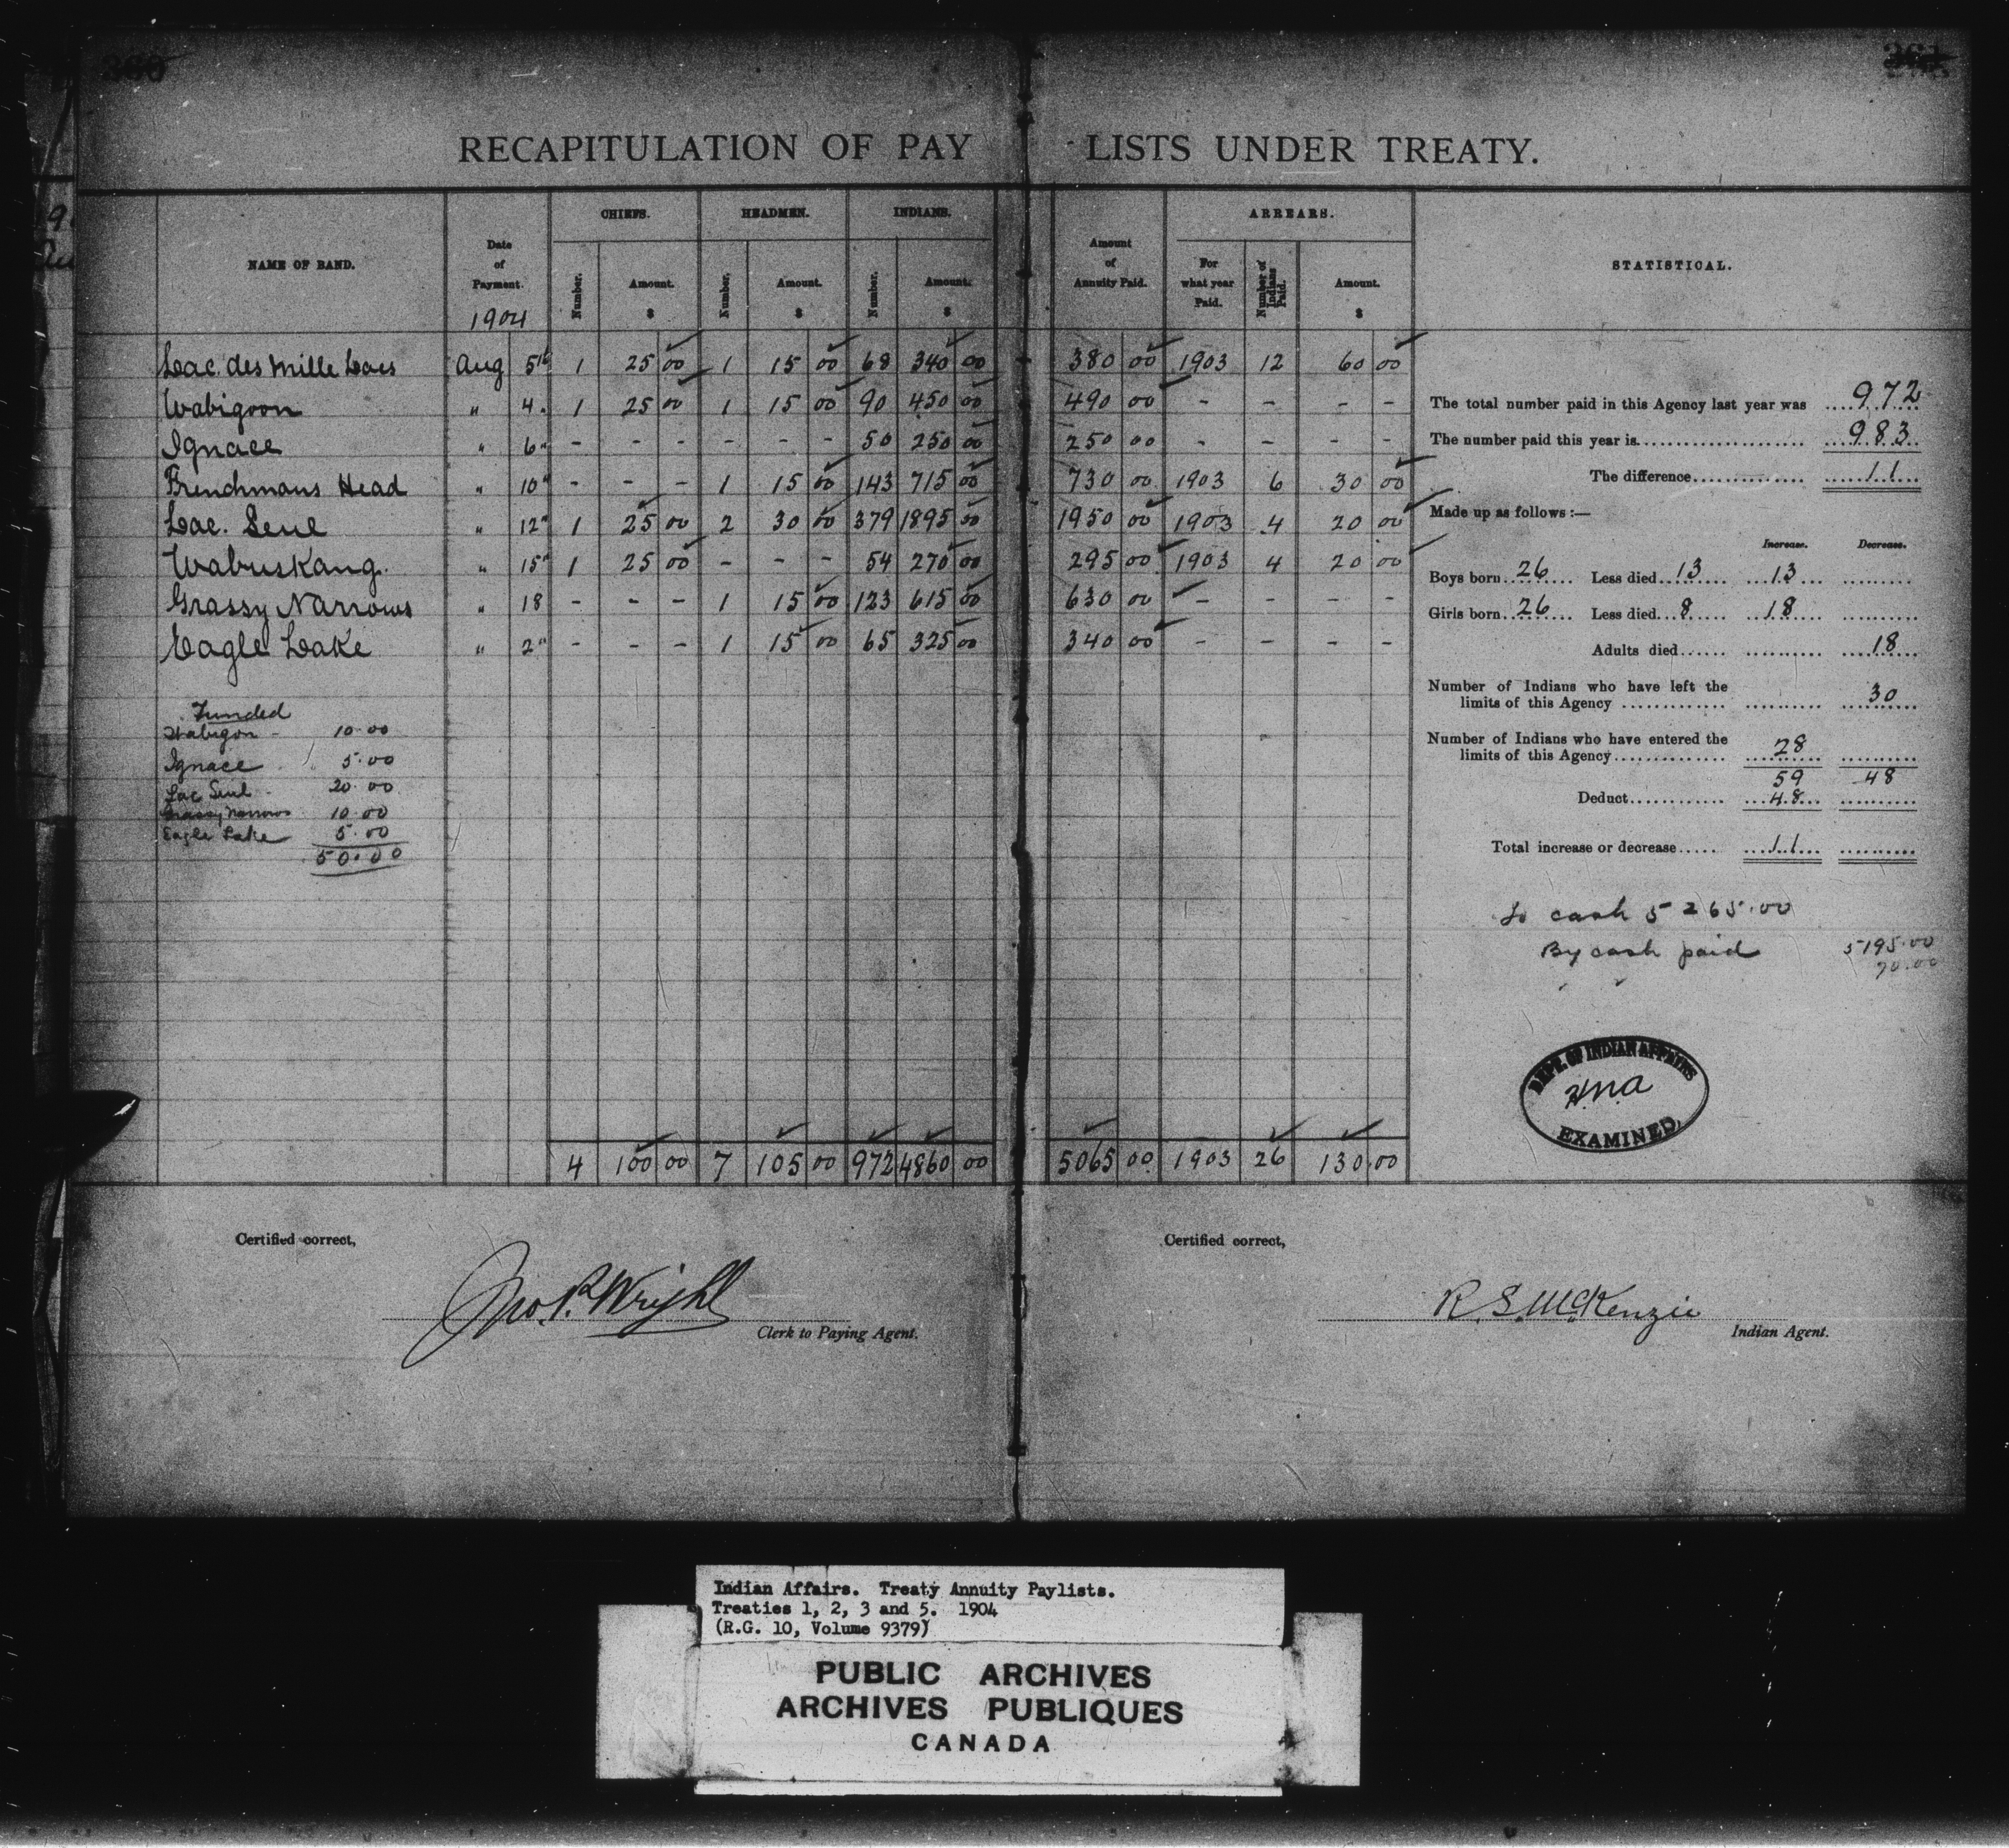 RECAPITULATION OF PAY LISTS UNDER TREATY.
NAME OF BAND. Date of Payment. 1904 CHIEFS. Number. Amount. $ HEADMEN. Number. Amount. $ INDIANS. Number. Amount. $ Amount of Annuity Paid. ARREARS. For what year Paid. Number of Indians Paid. Amount. $ STATISTICAL.
Lac des Mille Lacs Aug 5th 1 25 00 1 15 00 68 340 00 380 00 1903 12 60 00
Wabigoon " 4 " 1 25 00 1 15 00 90 450 00 490 00 - - - -
Ignace " 6 " - - - - - - 50 250 00 250 00 - - - -
Frenchmans Head " 10 " - - - 1 15 00 143 715 00 730 00 1903 6 30 00
Lac. Seul " 12 " 1 25 00 2 30 00 379 1895 00 1950 00 1903 4 20 00
Wabuskang. " 15 " 1 25 00 - - - 54 270 00 295 00 1903 4 20 00
Grassy Narrows " 18 - - - 1 15 00 123 615 00 630 00 - - - -
Eagle Lake " 2 " - - - 1 15 00 65 325 00 340 00 - - - -
Funded
Wabigon - 10.00
Ignace 5.00
Lac Seul - 20.00
Grassy Narrows 10.00
Eagle Lake 5.00
50.00
4 100 00 7 105 00 972 4860 00 5065 00 1903 26 130.00
The total number paid in this Agency last year was 972
The number paid this year is 983
The difference 11
Made up as follows:—
Increase. Decrease.
Boys born 26 Less died 13 13
Girls born 26 Less died 8 18
Adults died 18
Number of Indians who have left the
limits of this Agency 30
Number of Indians who have entered the
limits of this Agency 28
59 48
Deduct 48
Total increase or decrease 11
To cash 5265.00
By cash paid 5195.00
70.00
DEPT. OF INDIAN AFFAIRS
EXAMINED
Certified correct,
Jno. P. Wright
Clerk to Paying Agent.
Certified correct,
R. S. McKenzie
Indian Agent.
Indian Affairs. Treaty Annuity Paylists.
Treaties 1, 2, 3 and 5. 1904
(R.G. 10, Volume 9379)
PUBLIC ARCHIVES
ARCHIVES PUBLIQUES
CANADA